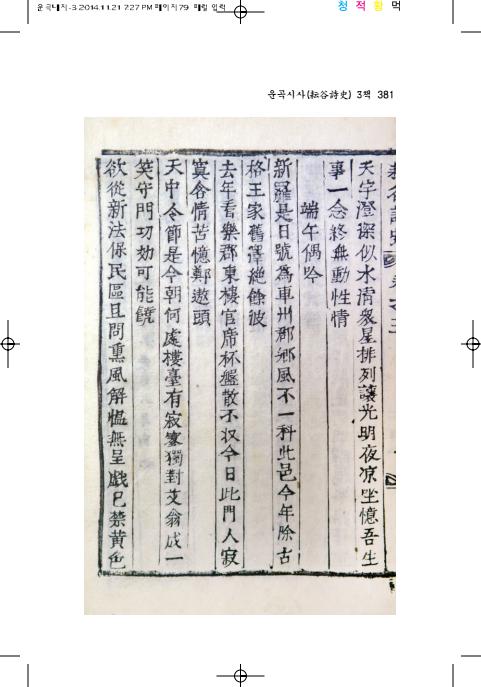 운곡대지-3.2014.11.21 7:27 PM 페이지79 매킬 입력
청 적 황 먹
운곡시사(耘谷詩史) 3책 381
天宇澄深似水淸衆星排列讓光明夜凉坐憶吾生
事一念終無動性情
端午偶吟
新羅是日號爲車州郡鄉風不一科此邑今年除古
格王家舊澤絶餘波
去年看樂郡東樓官席杯盤散不收今日此門人寂
寞含情苦憶鄭遨頭
天中令節是今朝何處樓臺有寂寥獨對艾翁成一
笑守門功効可能饒
欲從新法保民區且問熏風解慍無呈戱已禁黃色